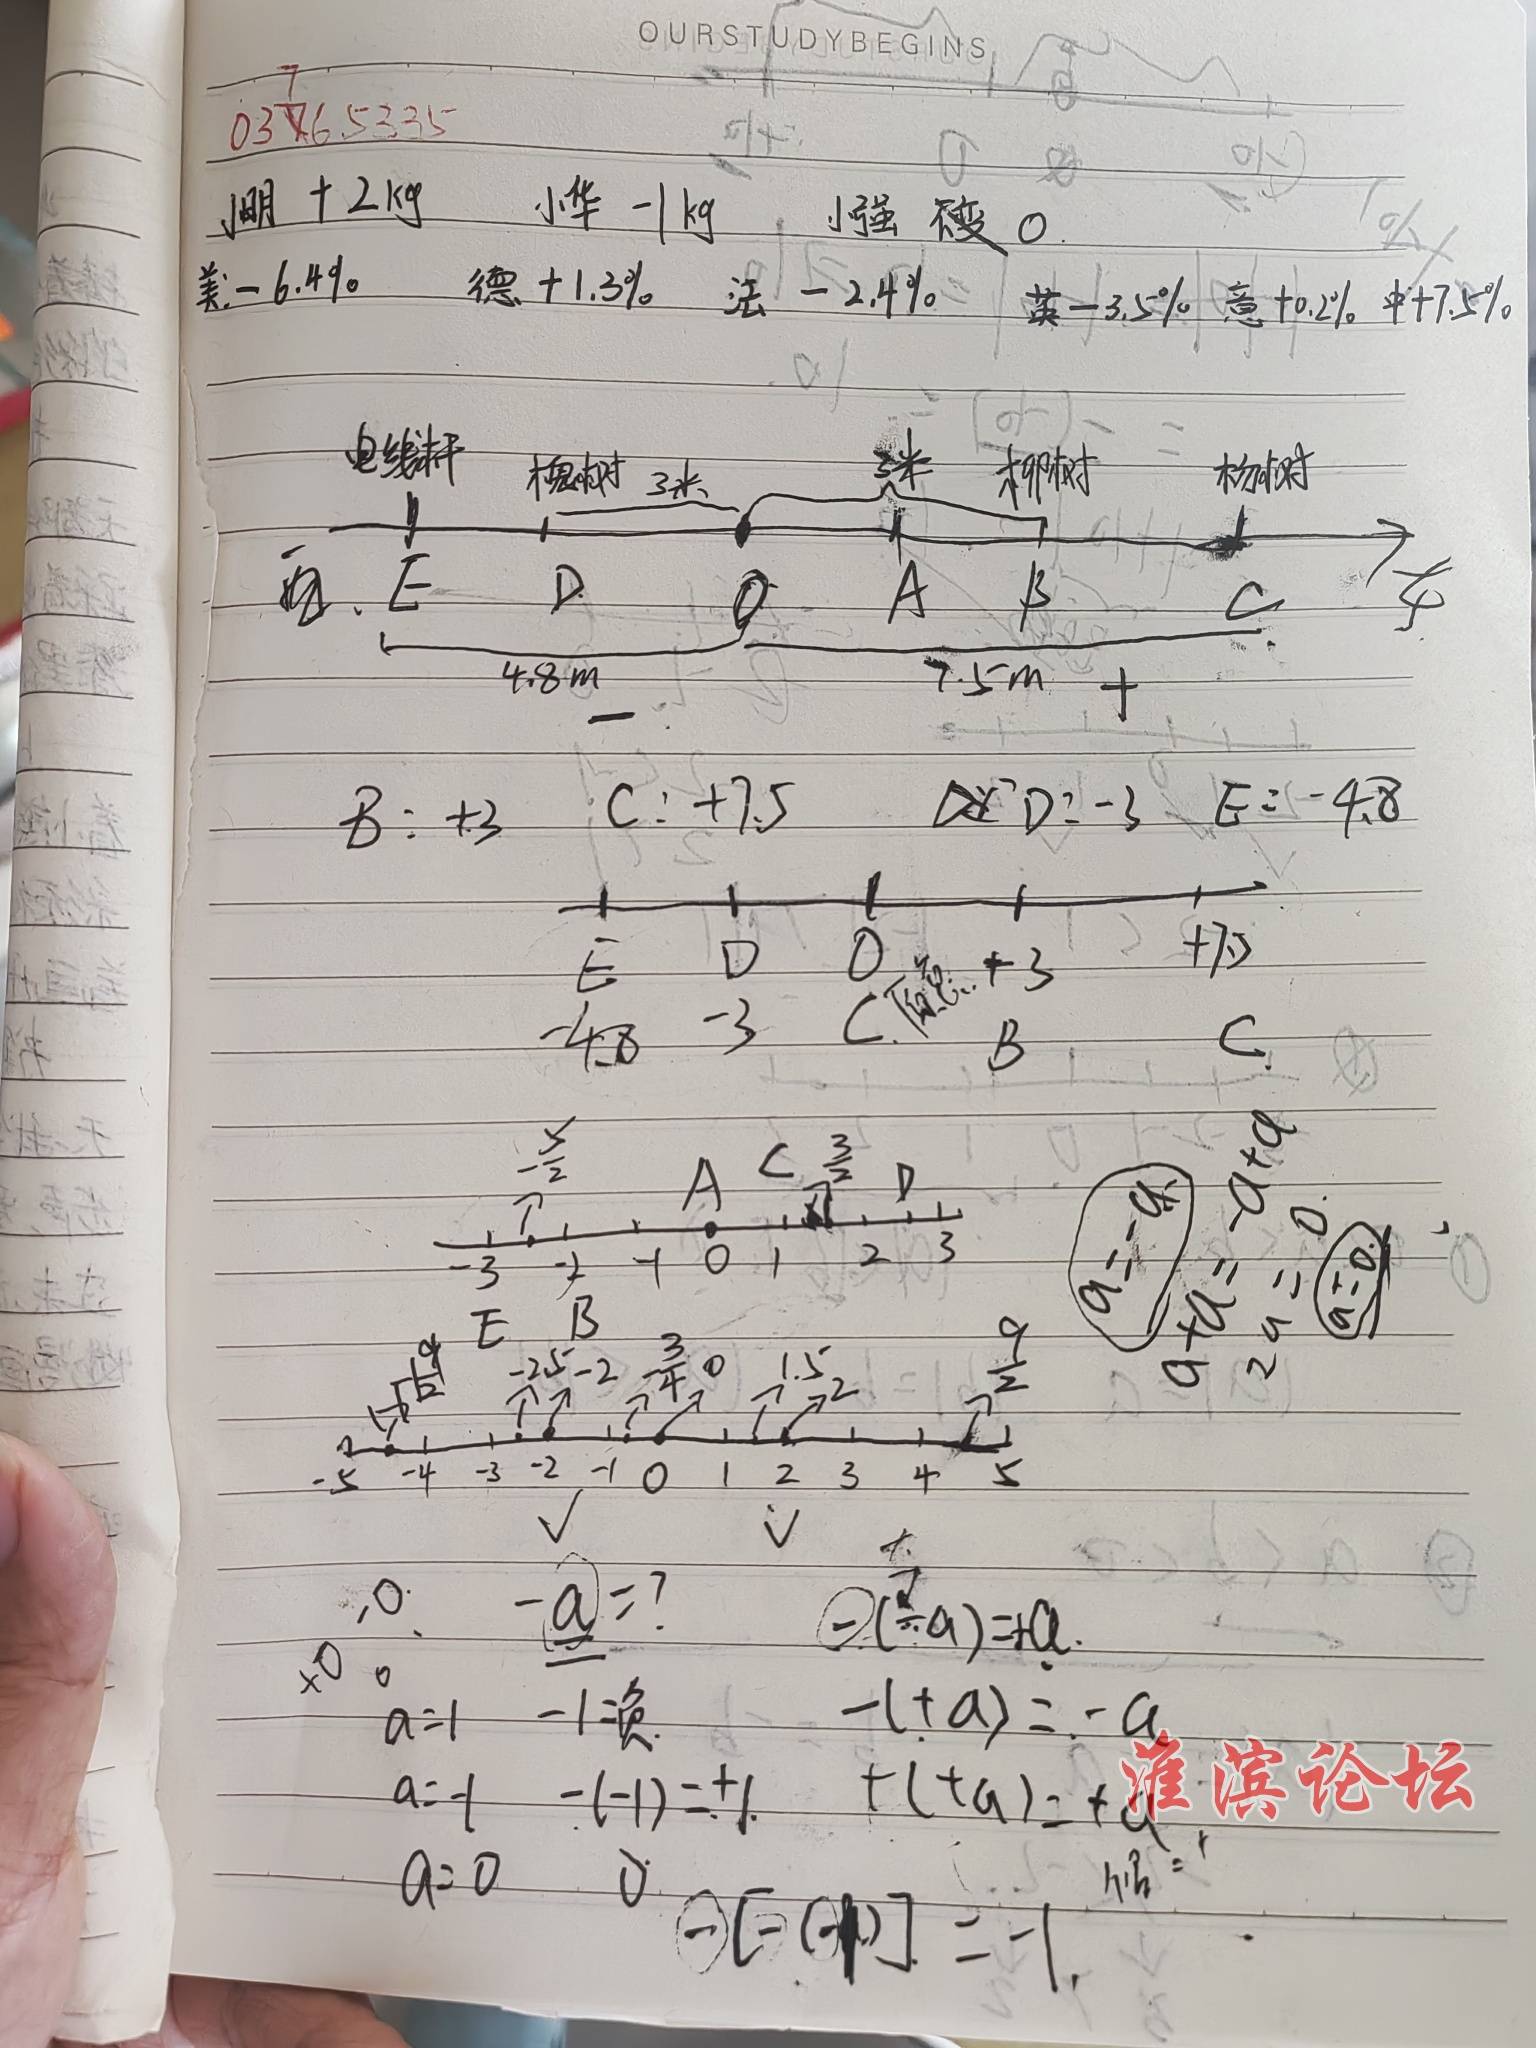 OURSTUDYBEGINS
7
03 6.5335
小明 +2kg 小华 -1kg 小强 不变 0.
美:-6.4% 德 +1.3% 法 -2.4% 英 -3.5% 意 +0.2% 中 +7.5%
电线杆 槐树 3米 3米 柳树 杨树
西 E D O A B C 东
4.8m 7.5m +
-
B: +3 C: +7.5 D: -3 E: -4.8
E D O +3 +7.5
-4.8 -3 C. 原点 B C
-5/2 A C 3/2 D
-3 -2 -1 0 1 2 3
E B
a=-a
a+a=-a+a
2a=0
a=0.
-9/2 -2.5 -2 -3/4 0 1.5 2 9/2
-5 -4 -3 -2 -1 0 1 2 3 4 5
✓ ✓
0. -a=? -(-a)=+a.
+
+0 0
a=1 -1=负. -(+a)=-a
a=-1 -(-1)=+1. +(+a)=+a
淮滨论坛
a=0 0.
-[-(-1)]=-1.